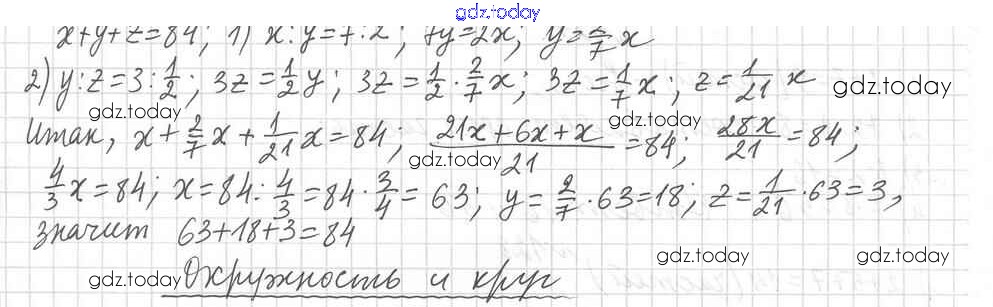 gdz.today
x+y+z=84; 1) x:y=7:2; 7y=2x; y=2/7 x
2) y:z=3:1/2; 3z=1/2 y; 3z=1/2·2/7 x; 3z=1/7 x; z=1/21 x
gdz.today
gdz.today
Итак, x+2/7 x+1/21 x=84; (21x+6x+x)/21=84; 28x/21=84;
gdz.today
4/3 x=84; x=84:4/3=84·3/4=63; y=2/7·63=18; z=1/21·63=3,
значит 63+18+3=84
gdz.today
gdz.today
Окружность и круг
gdz.today
gdz.today